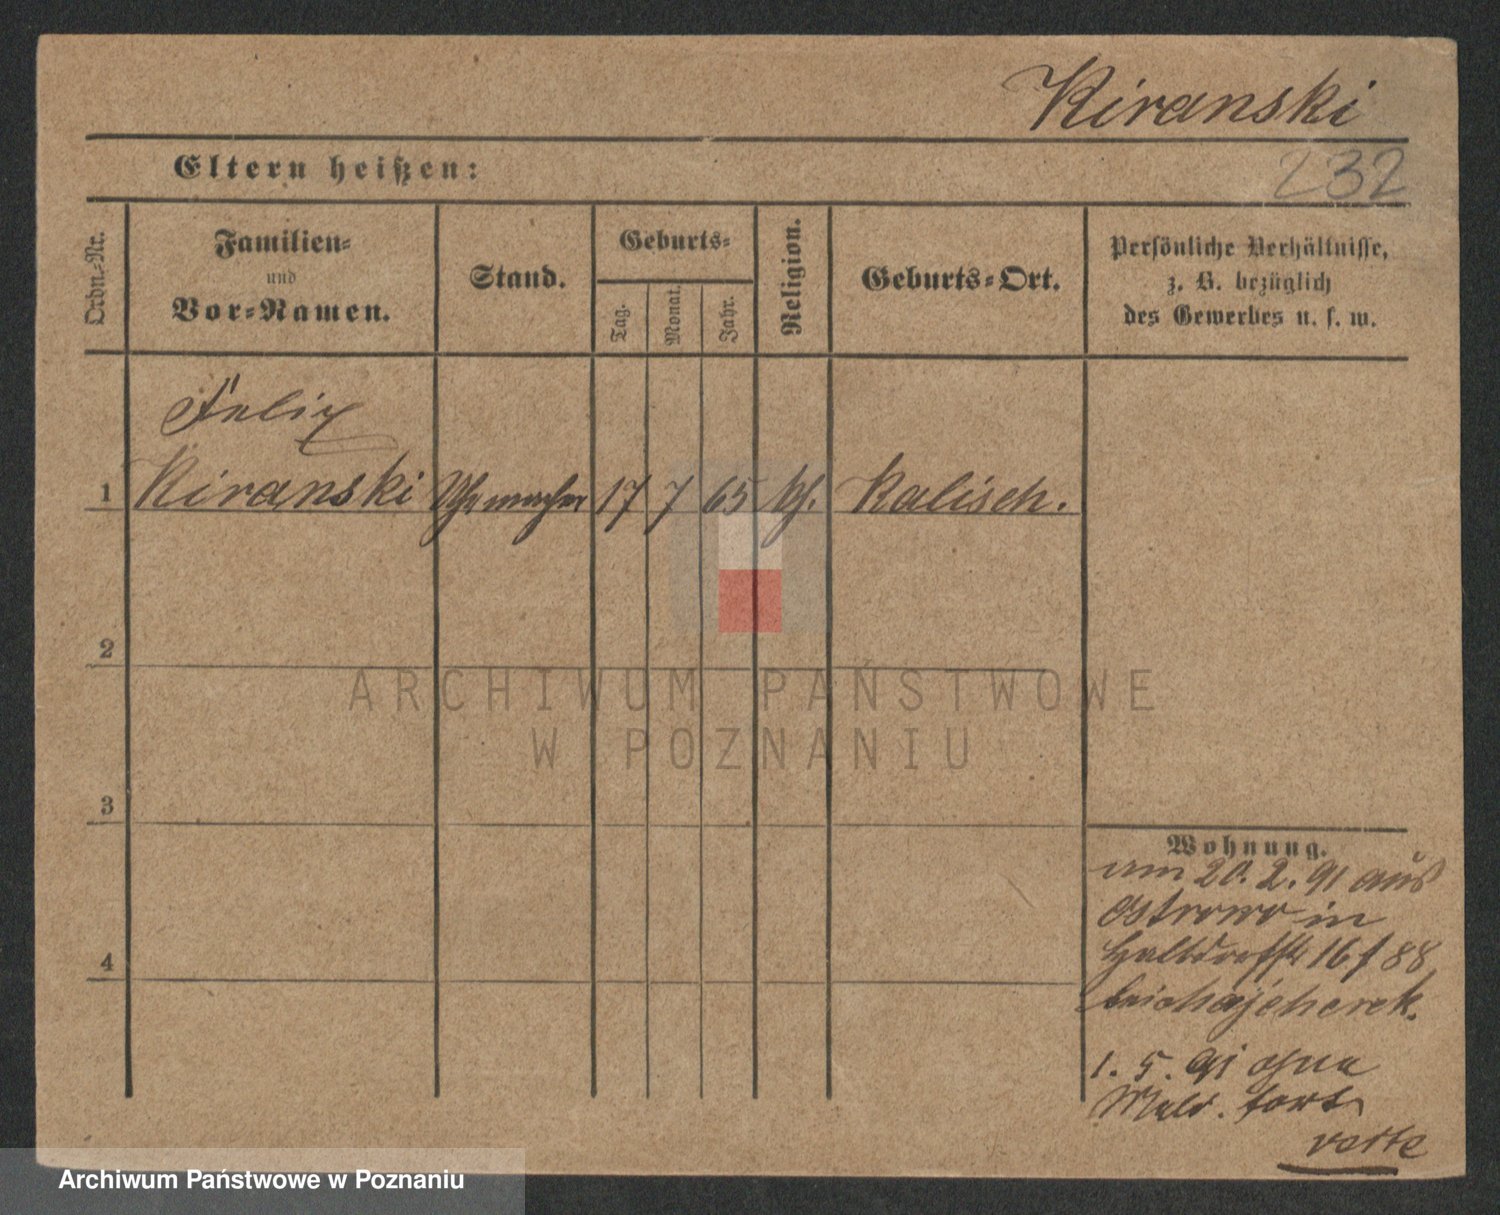 Kiranski
Eltern heißen:
232
Ordn.-Nr.
Familien-
und
Vor-Namen.
Stand.
Geburts-
Tag.
Monat.
Jahr.
Religion.
Geburts-Ort.
Persönliche Verhältnisse,
z. B. bezüglich
des Gewerbes u. s. w.
Felix
1 Kiranski Uhrmacher 17 7 65 kh. Kalisch.
2
3
4
Wohnung.
am 20. 2. 91 aus
Ostrowo in
Halbdorfstr 16 f 88
bei
1. 5. 91 ohne
Meld. fort
verte
ARCHIWUM PAŃSTWOWE
W POZNANIU
Archiwum Państwowe w Poznaniu